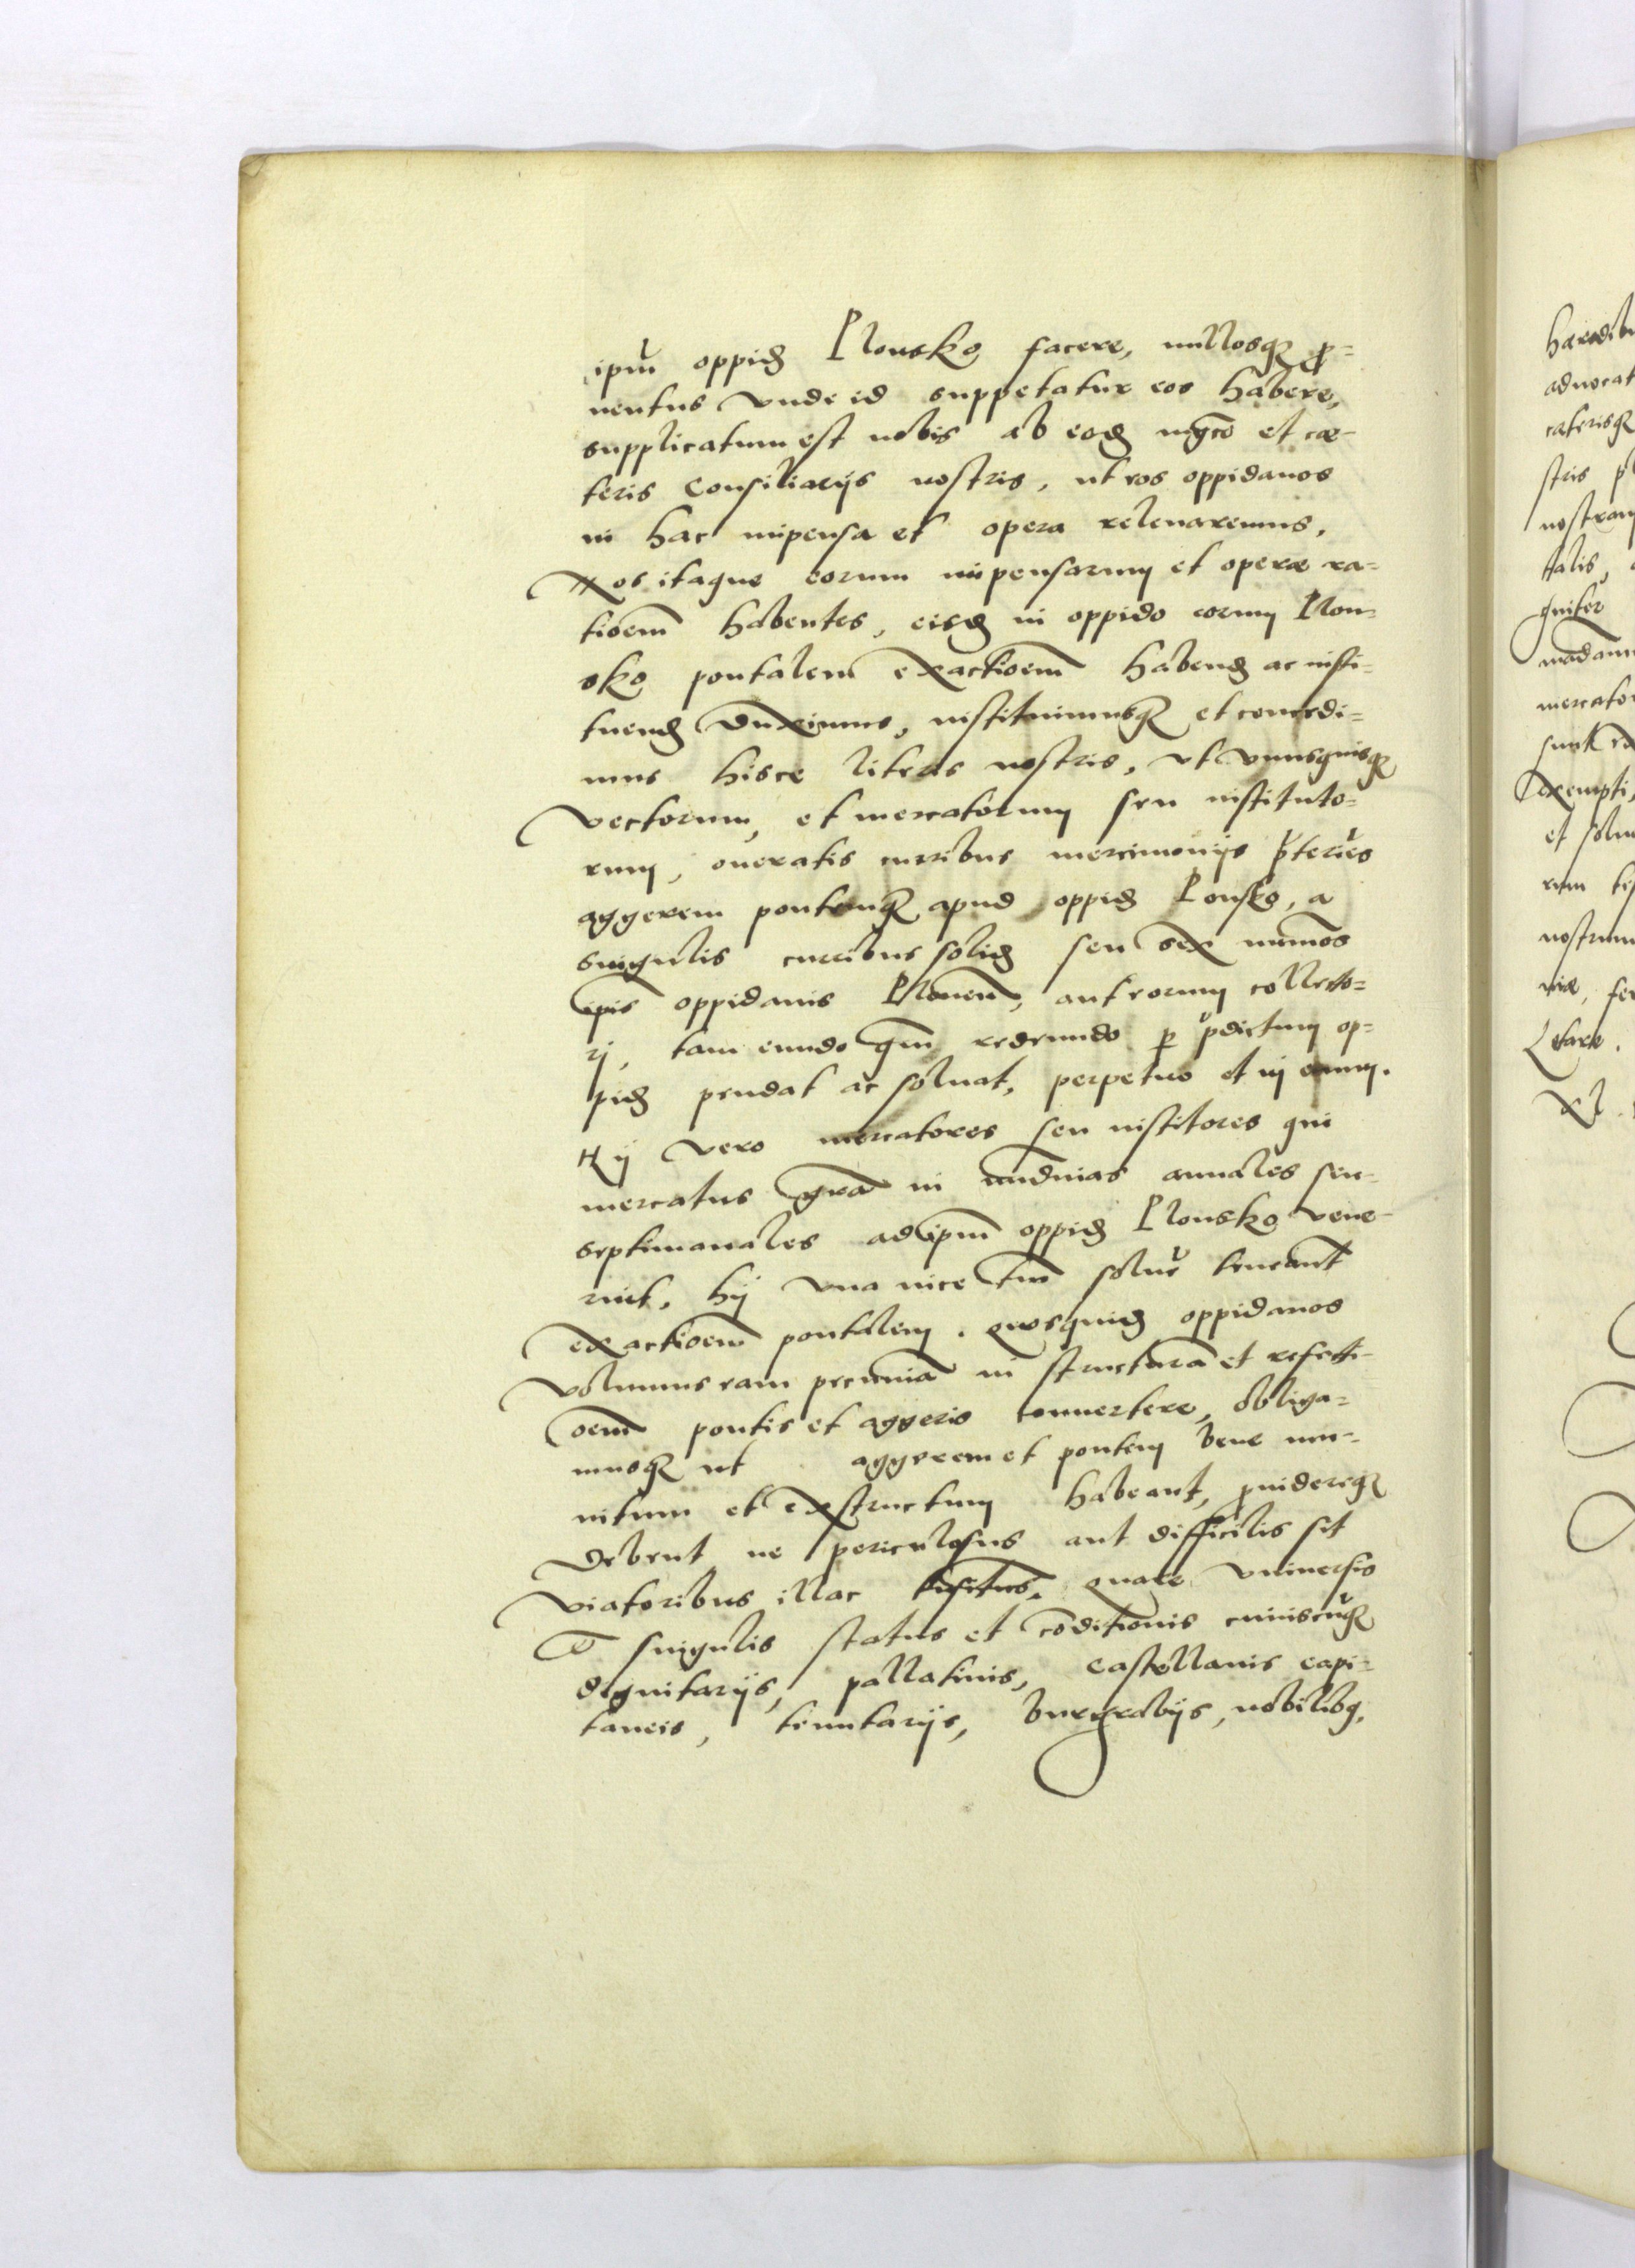 ipm̄ oppid Plonsko facere, nullosq pro=
uentus vnde id suppetatur eos habere,
supplicatum est nobis ab eod mgco et cæ-
teris Consiliarijs nostris, ut eos oppidanos
in hac impensa et opera releuaremus,
Nos itaque eorum impensarum et operæ ra=
tioem habentes, eisd in oppido eorum Plon=
sko pontalem exactioem habend ac insti=
tuend duximus, instituimusq et concedi=
mus hisce literis nostris, vt vnusquisq
vectorum, et mercatorum seu instituto=
rum, oneratis curribus mercimonijs p̄teriēs
aggerem pontemq apud oppid Plonsko, a
singulis curribus solid seu sex numōs
ipis oppidanis Plonen̄, aut eorum collecto=
ri, tam eundo qm̄ redeundo p p̄dictum op=
pid pendat ac soluat, perpetuo et in euum.
Hij vero mercatores seu institores qui
mercatus grā in nudinas annales seu=
septimanales ad ipm̄ oppid Plonsko vene-
rint, hij vna vice tm̄ soluē teneant̄
exactioem̄ pontalem. quosquid oppidanos
volumus eam pecuniā in structurā et refecti=
oem̄ pontis et aggeris conuertere, obliga=
musq ut aggerem et pontem bene mu=
nitum et exstructum habeant, prouidereq
debent ne periculosus aut difficilis sit
viatoribus illac. quare vniuersis
et singulis status et cōditionis cuiuscūq
dignitarijs, pallatinis, castellanis capi=
taneis, tenutarijs, burgrabijs, nobilibq,
hæredibu
aduocat
cæterisq
stris
nostram
talis,
niter
madamu
mercator
sunt
exempti,
et solu
rum
nostrum